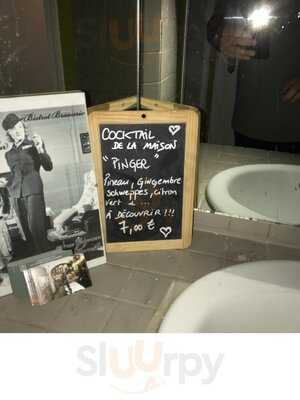 Bistrot Brasserie
COCKTAIL
DE LA MAISON
"PINGER"
Pineau, Gingembre
schweppes, citron
vert & ...
À DÉCOUVRIR !!!
7,00 €
Sluurpy